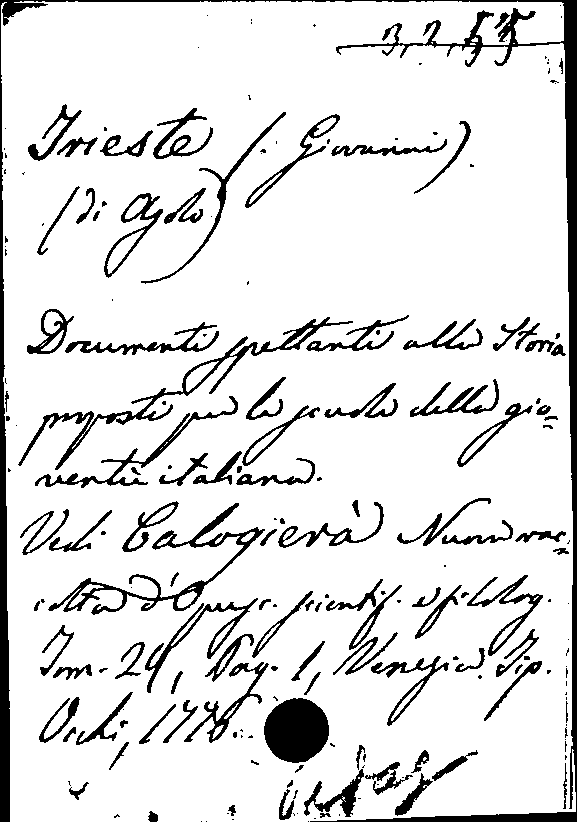 3, 2, 55
Trieste (. Giovanni)
(di Asolo)
Documenti spettanti alla Storia
proposti per la scuola della gio=
ventù italiana.
Vedi Calogierà Nuova rac=
colta d'Opusc. scientif. e filolog.
Tom. 29, Pag. 1, Venezia. Tip.
Occhi, 1776.